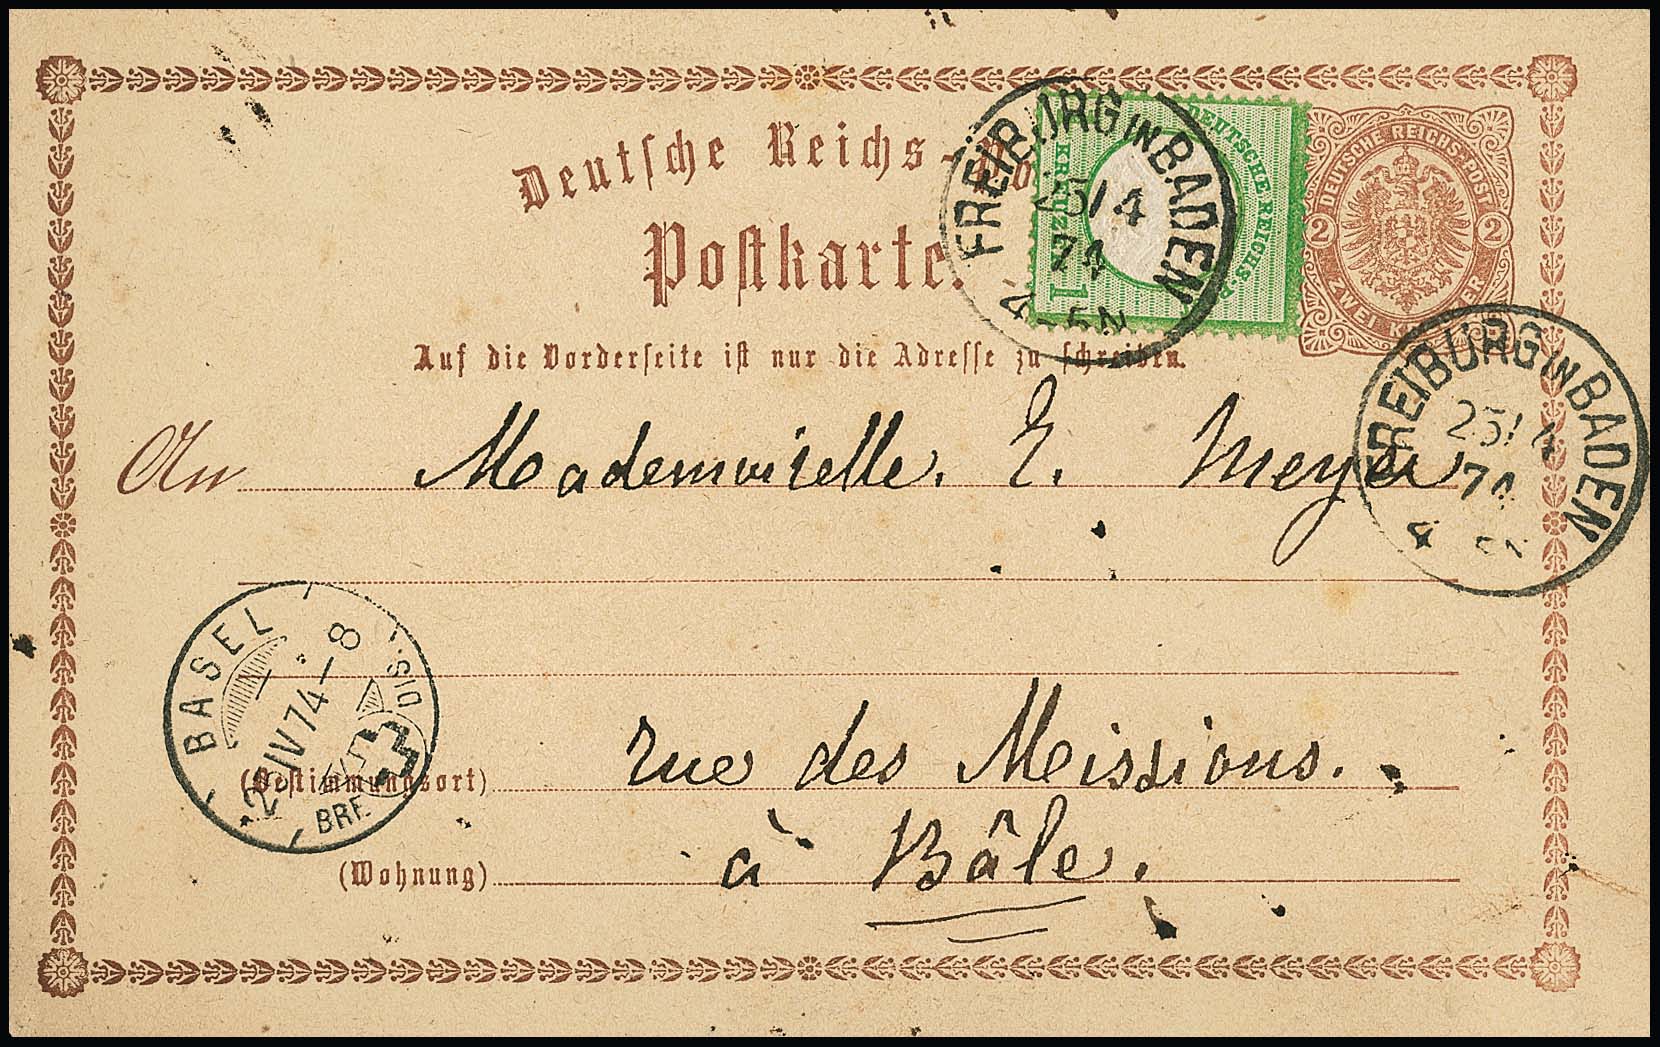 Deutsche Reichs-Po
Postkarte.
Auf die Vorderseite ist nur die Adresse zu schreiben.
DEUTSCHE REICHS-P
1 KREUZ
1
DEUTSCHE REICHS-POST
2 2
ZWEI KR ER
FREIBURG IN BADEN
25/4
74
4-5N
FREIBURG IN BADEN
25/4
74
4 5N
An Mademoiselle. E. Meyer
BASEL
IV 74-8
BRF DIS.
(Bestimmungsort) rue des Missions.
(Wohnung) à Bâle.